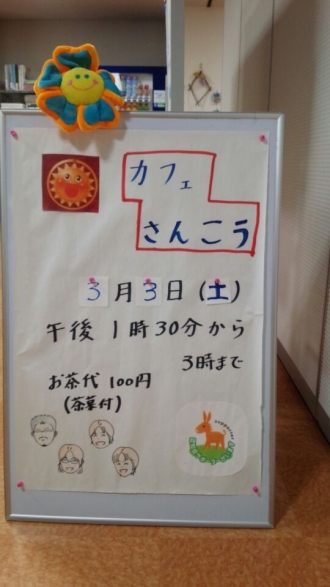 カフェ
さんこう
3月3日(土)
午後1時30分から
3時まで
お茶代100円
(茶菓付)